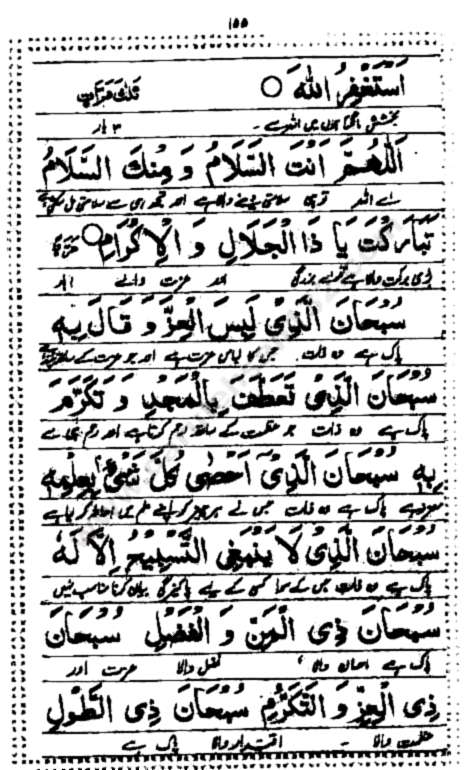 ۱۵۵
اَسْتَغْفِرُ اللهَ ○ ثَلٰثَ مَرَّاتٍ
بخشش مانگتا ہوں میں اللہ سے ۔ ۳ بار
اَللّٰهُمَّ اَنْتَ السَّلَامُ وَ مِنْكَ السَّلَامُ
اے اللہ تو ہی سلامتی دینے والا ہے اور تجھ ہی سے سلامتی
تَبَارَكْتَ يَا ذَا الْجَلَالِ وَ الْاِكْرَامِ ○
برکت والا ہے اور عزت والے
سُبْحَانَ الَّذِيْ لَبِسَ الْعِزَّ وَ قَالَ بِهٖ
پاک ہے وہ ذات جس کا لباس عزت ہے اور جو عزت کے ساتھ
سُبْحَانَ الَّذِيْ تَعَطَّفَ بِالْمَجْدِ وَ تَكَرَّمَ
پاک ہے وہ ذات جو عظمت کے ساتھ رحم کرتا ہے اور
بِهٖ سُبْحَانَ الَّذِيْ اَحْصٰى كُلَّ شَيْءٍ بِعِلْمِهٖ
پاک ہے وہ ذات جس نے ہر چیز کو اپنے علم
سُبْحَانَ الَّذِيْ لَا يَنْبَغِي التَّسْبِيْحُ اِلَّا لَهٗ
پاک ہے وہ ذات جس کے سوا کسی کے لیے پاکیزگی بیان کرنا مناسب نہیں
سُبْحَانَ ذِي الْمَنِّ وَ الْفَضْلِ سُبْحَانَ
پاک ہے احسان والا ، فضل والا عزت اور
ذِي الْعِزِّ وَ التَّكَرُّمِ سُبْحَانَ ذِي الطَّوْلِ
عظمت والا ۔ اقتدار والا پاک ہے